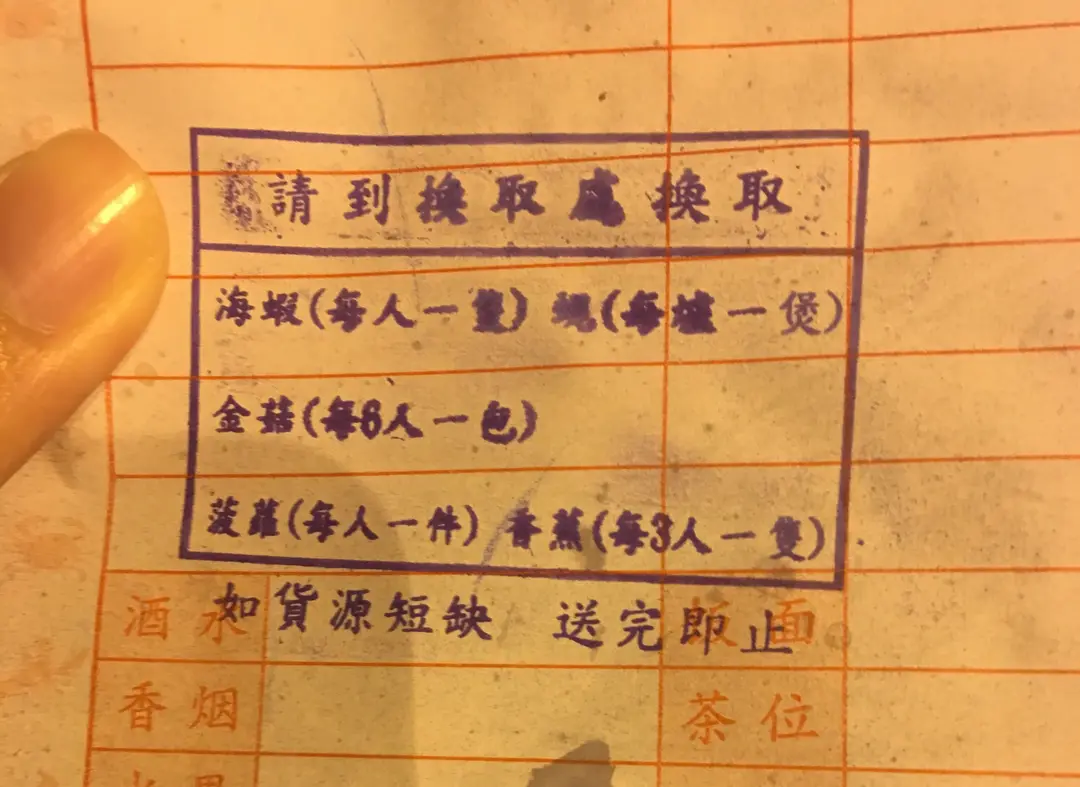 請到換取處換取
海蝦(每人一隻) 蜆(每爐一煲)
金菇(每6人一包)
菠蘿(每人一件) 香蕉(每3人一隻)
如貨源短缺 送完即止
酒水 飯面
香烟 茶位
水果